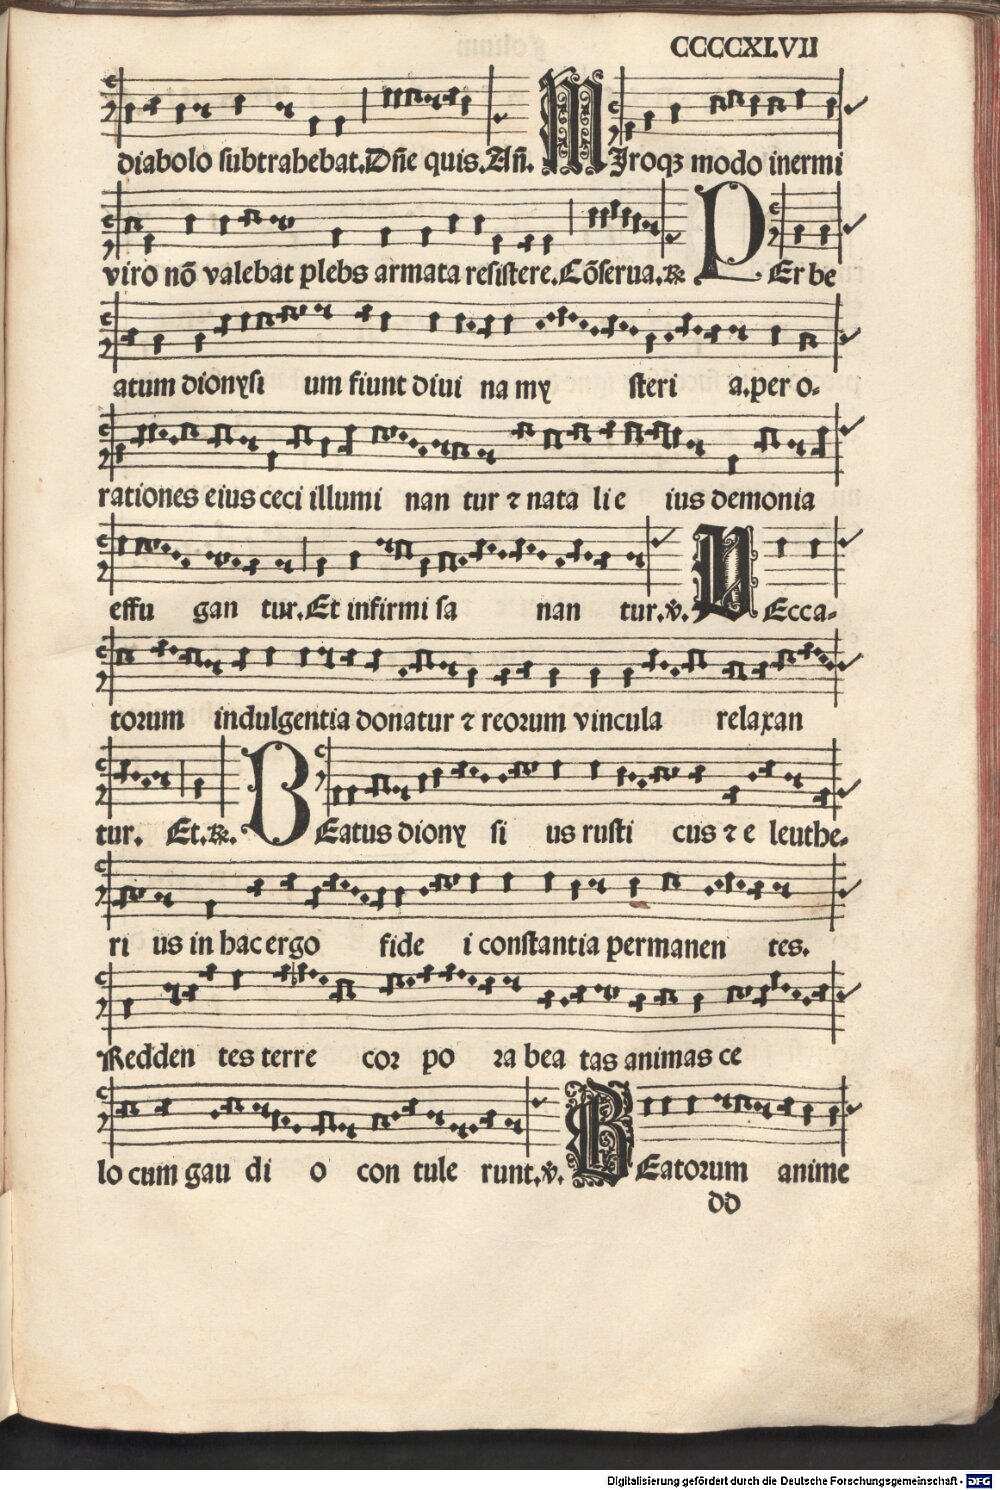 CCCCXLVII
diabolo subtrahebat.Dn̄e quis.An̄. MIroqꝫ modo inermi
viro nō valebat plebs armata resistere.Cōserua.℟ PEr be
atum dionysi um fiunt divi na my steri a.per o-
rationes eius ceci illumi nan tur ⁊ nata li e ius demonia
effu gan tur.Et infirmi sa nan tur.℣. PEcca-
torum indulgentia donatur ⁊ reorum vincula relaxan
tur. Et.℟. BEatus diony si us rusti cus ⁊ e leuthe-
ri us in hac ergo fide i constantia permanen tes.
Redden tes terre cor po ra bea tas animas ce
lo cum gau di o con tule runt.℣. BEatorum anime
dd
Digitalisierung gefördert durch die Deutsche Forschungsgemeinschaft - DFG